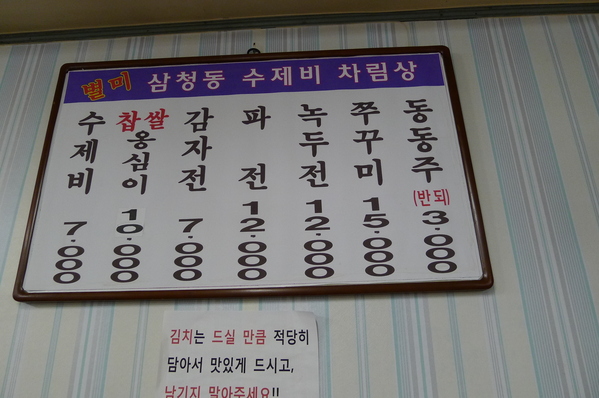 별미 삼청동 수제비 차림상
수제비 7.000
찹쌀 옹심이 10.000
감자전 7.000
파전 12.000
녹두전 12.000
쭈꾸미 15.000
동동주 (반되) 3.000
김치는 드실 만큼 적당히
담아서 맛있게 드시고,
남기지 말아주세요!!